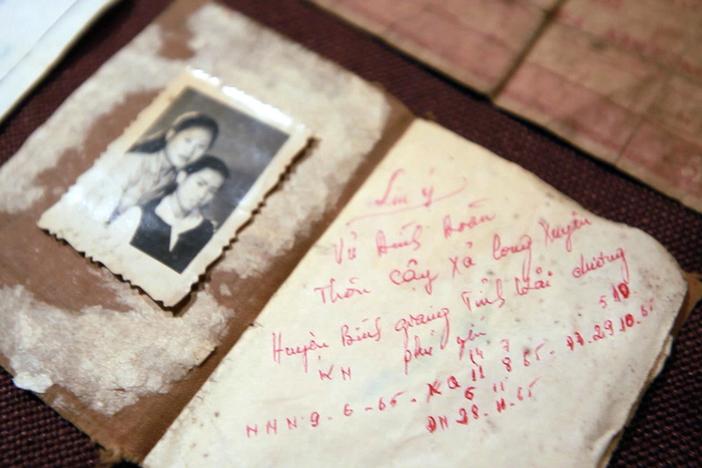 Lưu ý
Vũ Đình Đoàn
Thôn Cậy Xã Long Xuyên
Huyện Bình giang Tỉnh Hải dương
KN phú yên 5 10
14 7
NNN 9-6-65. KQ 11 8 65. 29.10.65
6 11
DN 28.11.65